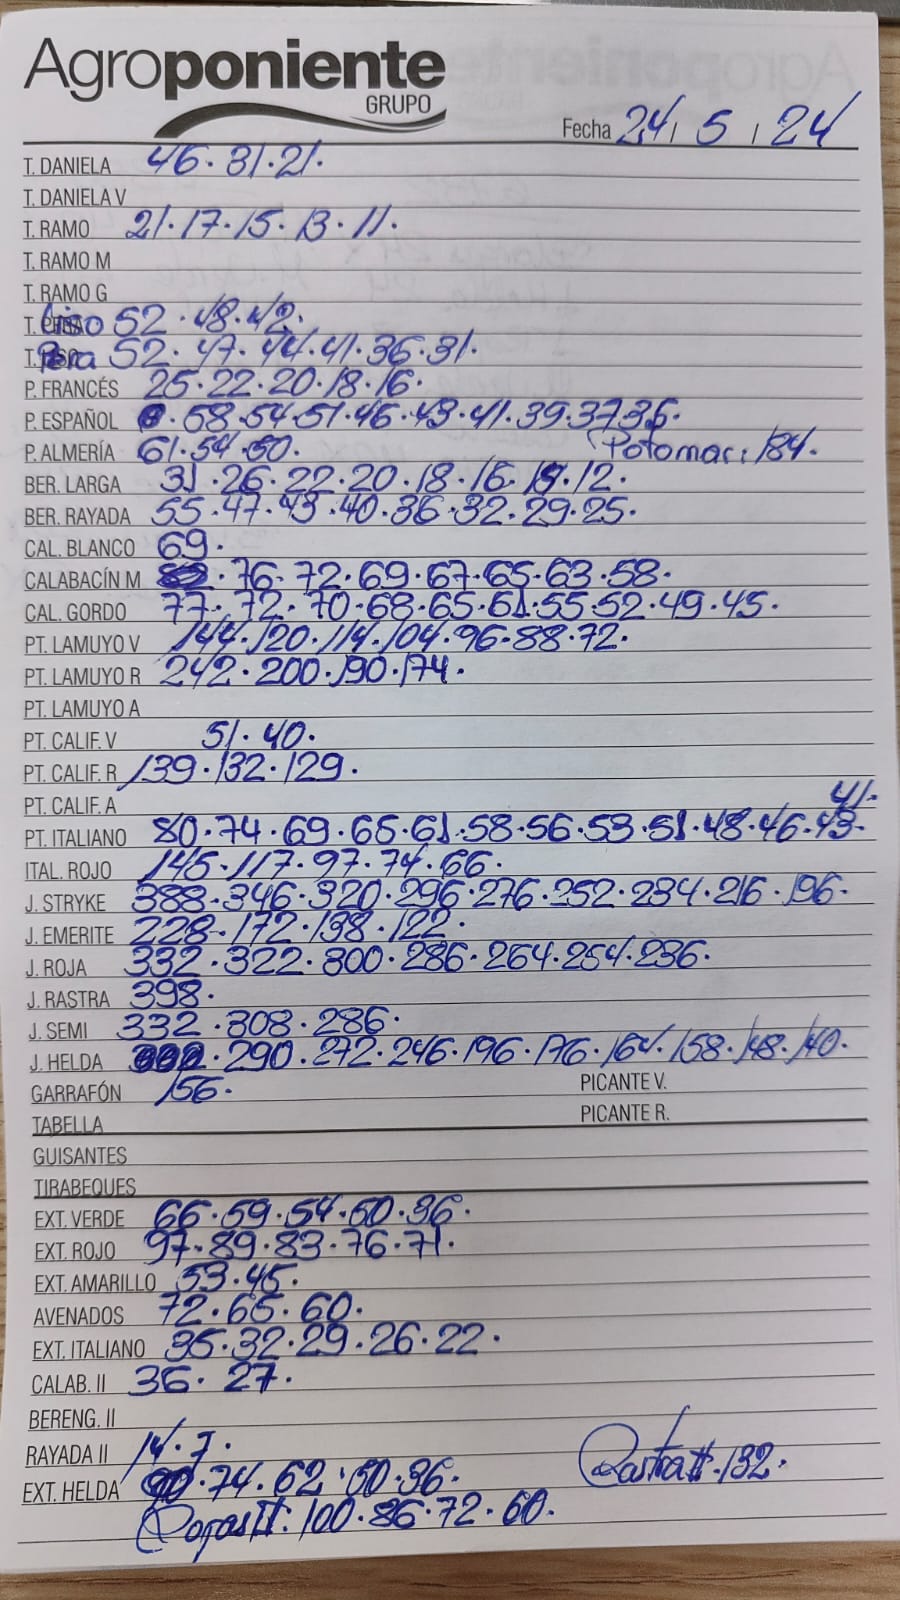 Agroponiente
GRUPO
Fecha 24 / 5 / 24
T. DANELA 46. 31. 21.
T. DANIELA V
T. RAMO 21. 17. 15. 13. 11.
T. RAMO M
T. RAMO G
T. Liso 52. 48. 42.
T. Pera 52. 47. 44. 41. 36. 31.
P. FRANCÉS 25. 22. 20. 18. 16.
P. ESPAÑOL . 58. 54. 51. 46. 43. 41. 39. 37 36.
P. ALMERÍA 61. 54. 50. (Potomac: 184.
BER. LARGA 31. 26. 22. 20. 18. 16. 12.
BER. RAYADA 55. 47. 43. 40. 36. 32. 29. 25.
CAL. BLANCO 69.
CALABACÍN M. . 76. 72. 69. 67. 65. 63. 58.
CAL. GORDO 77. 72. 70. 68. 65. 61. 55. 52. 49. 45.
PT. LAMUYO V 144. 120. 114. 104. 96. 88. 72.
PT. LAMUYO R 242. 200. 190. 174.
PT. LAMUYO A
PT. CALIF. V 51. 40.
PT. CALIF. R 139. 132. 129.
PT. CALIF. A
PT. ITALIANO 80. 74. 69. 65. 61. 58. 56. 53. 51. 48. 46. 43. 41.
ITAL. ROJO 145. 117. 97. 74. 66.
J. STRYKE 388. 346. 320. 296. 276. 252. 234. 216. 196.
J. EMERITE 228. 172. 138. 122.
J. ROJA 332. 322. 300. 286. 264. 254. 236.
J. RASTRA 398.
J. SEMI 332. 308. 286.
J. HELDA . 290. 272. 246. 196. 176. 164. 158. 148. 140.
GARRAFÓN 156. PICANTE V.
TABELLA PICANTE R.
GUISANTES
TIRABEQUES
EXT. VERDE 66. 59. 54. 50. 36.
EXT. ROJO 97. 89. 83. 76. 71.
EXT. AMARILLO 53. 45.
AVENADOS 72. 65. 60.
EXT. ITALIANO 35. 32. 29. 26. 22.
CALAB. II 36. 27.
BERENG. II
RAYADA II 14. 7.
EXT. HELDA . 74. 62. 50. 36. Rastra II. 132.
Rojas II: 100. 86. 72. 60.